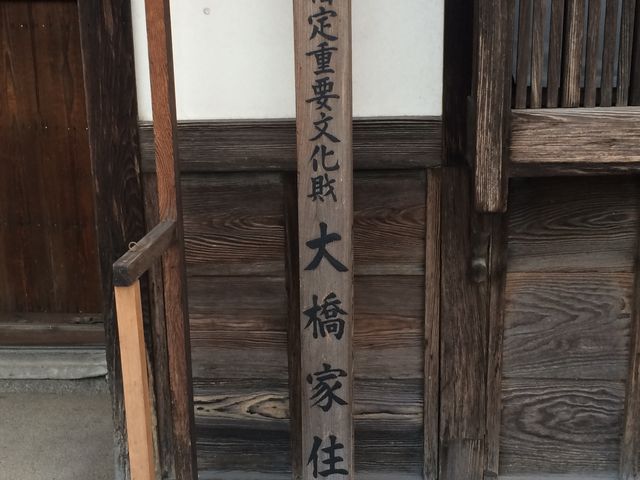 指定重要文化財 大橋家住